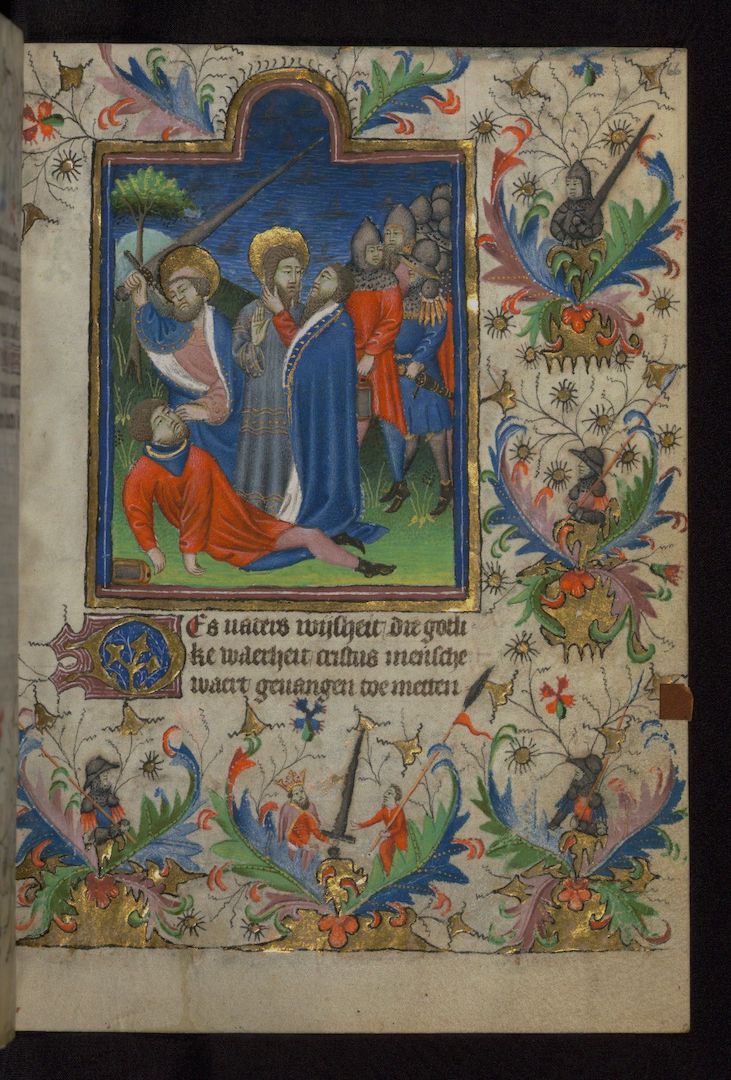 66
Es vaters wijsheit die godli
ke waerheit cristus mensche
waert geuangen toe metten